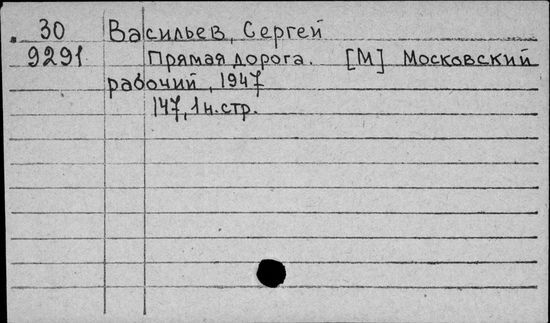 30 Васильев, Сергей
9291 Прямая дорога. [М] Московский
рабочий, 1947
147, 1 н. стр.